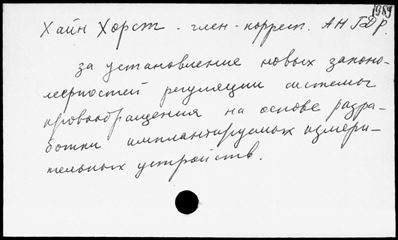 1989
Хайн Хорст - член-корресп. АН ГДР.
за установление новых законо-
мерностей регуляции системы
кровообращения на основе разра-
ботки имплантируемых измери-
тельных устройств.